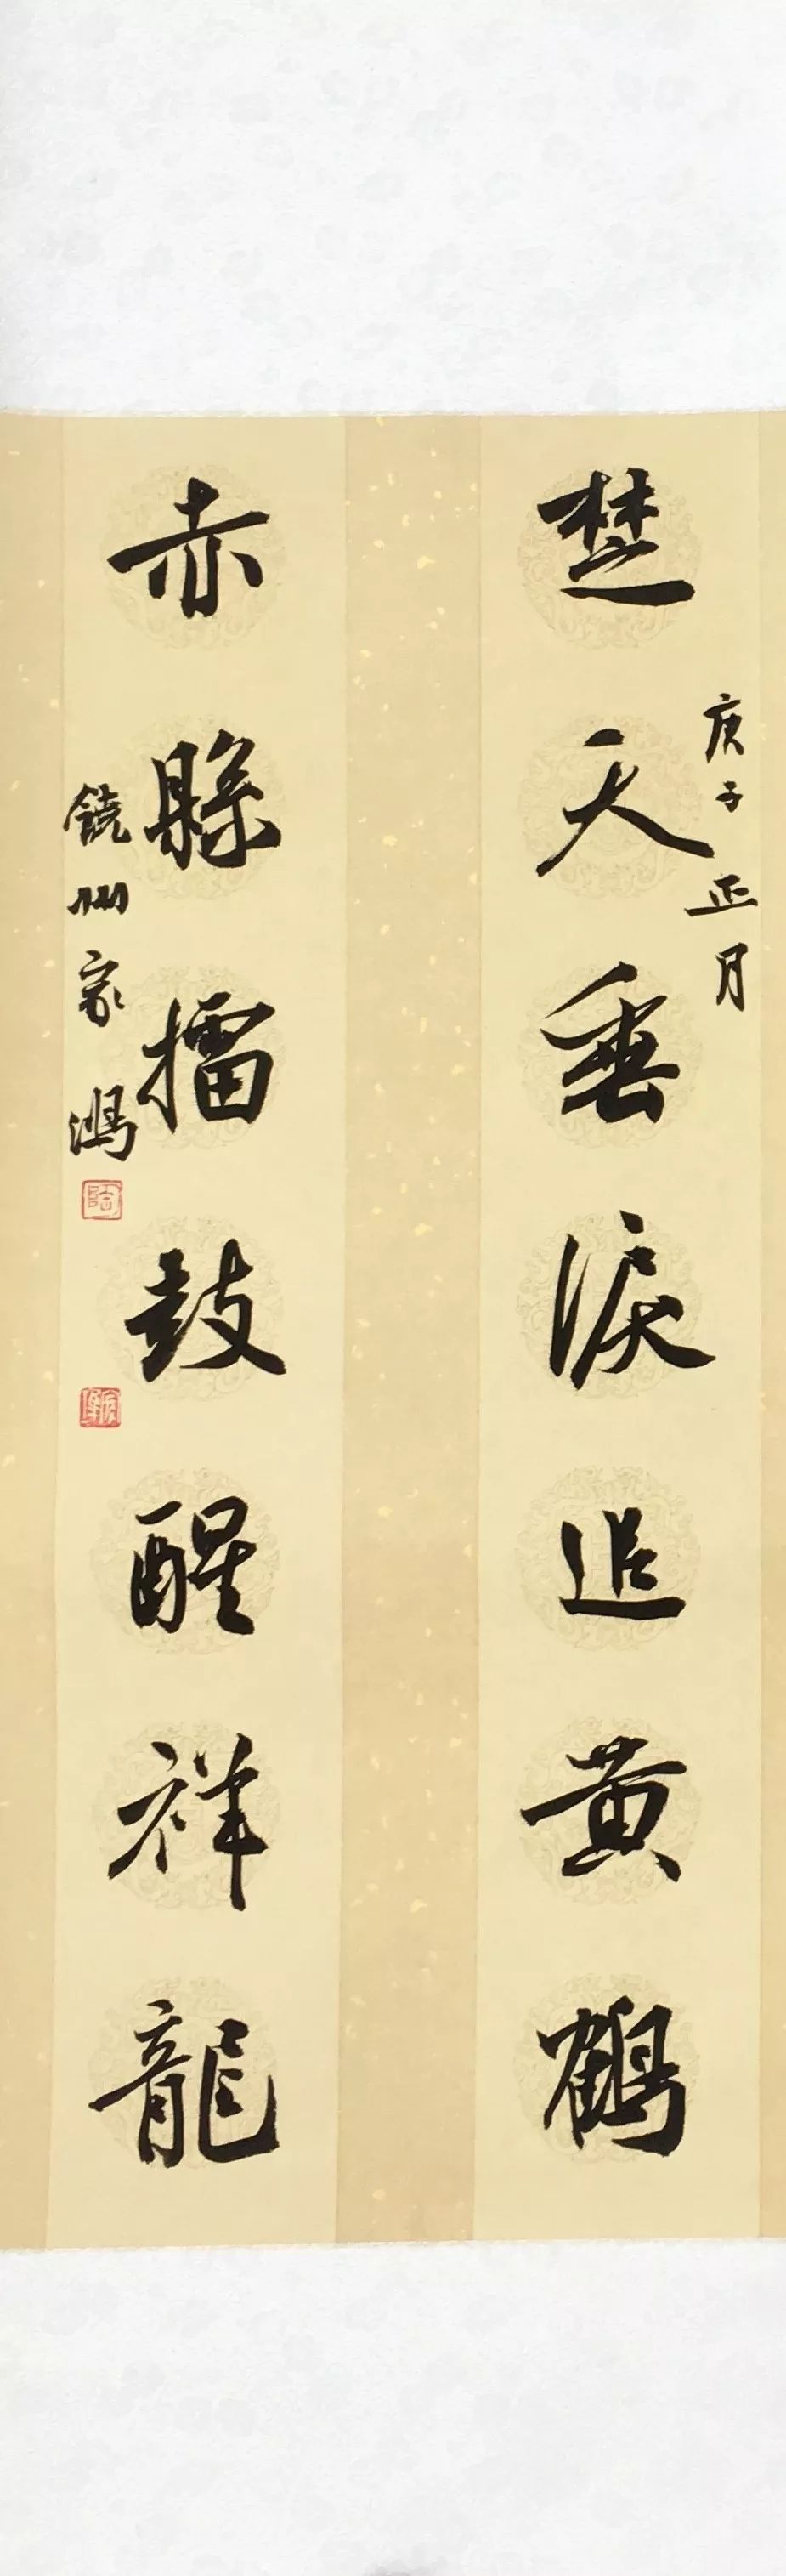 楚天垂淚追黄鶴
庚子正月
赤縣擂鼓醒祥龍
饶州家鴻
陶